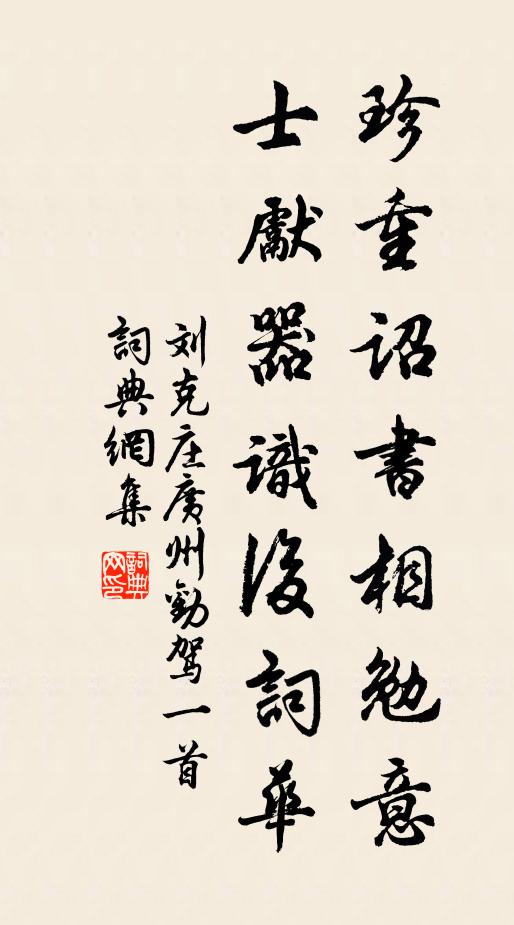 珍重詔書相勉意
士獻器識後詞華
刘克庄廣州勸駕一首
詞典網集
詞典网印